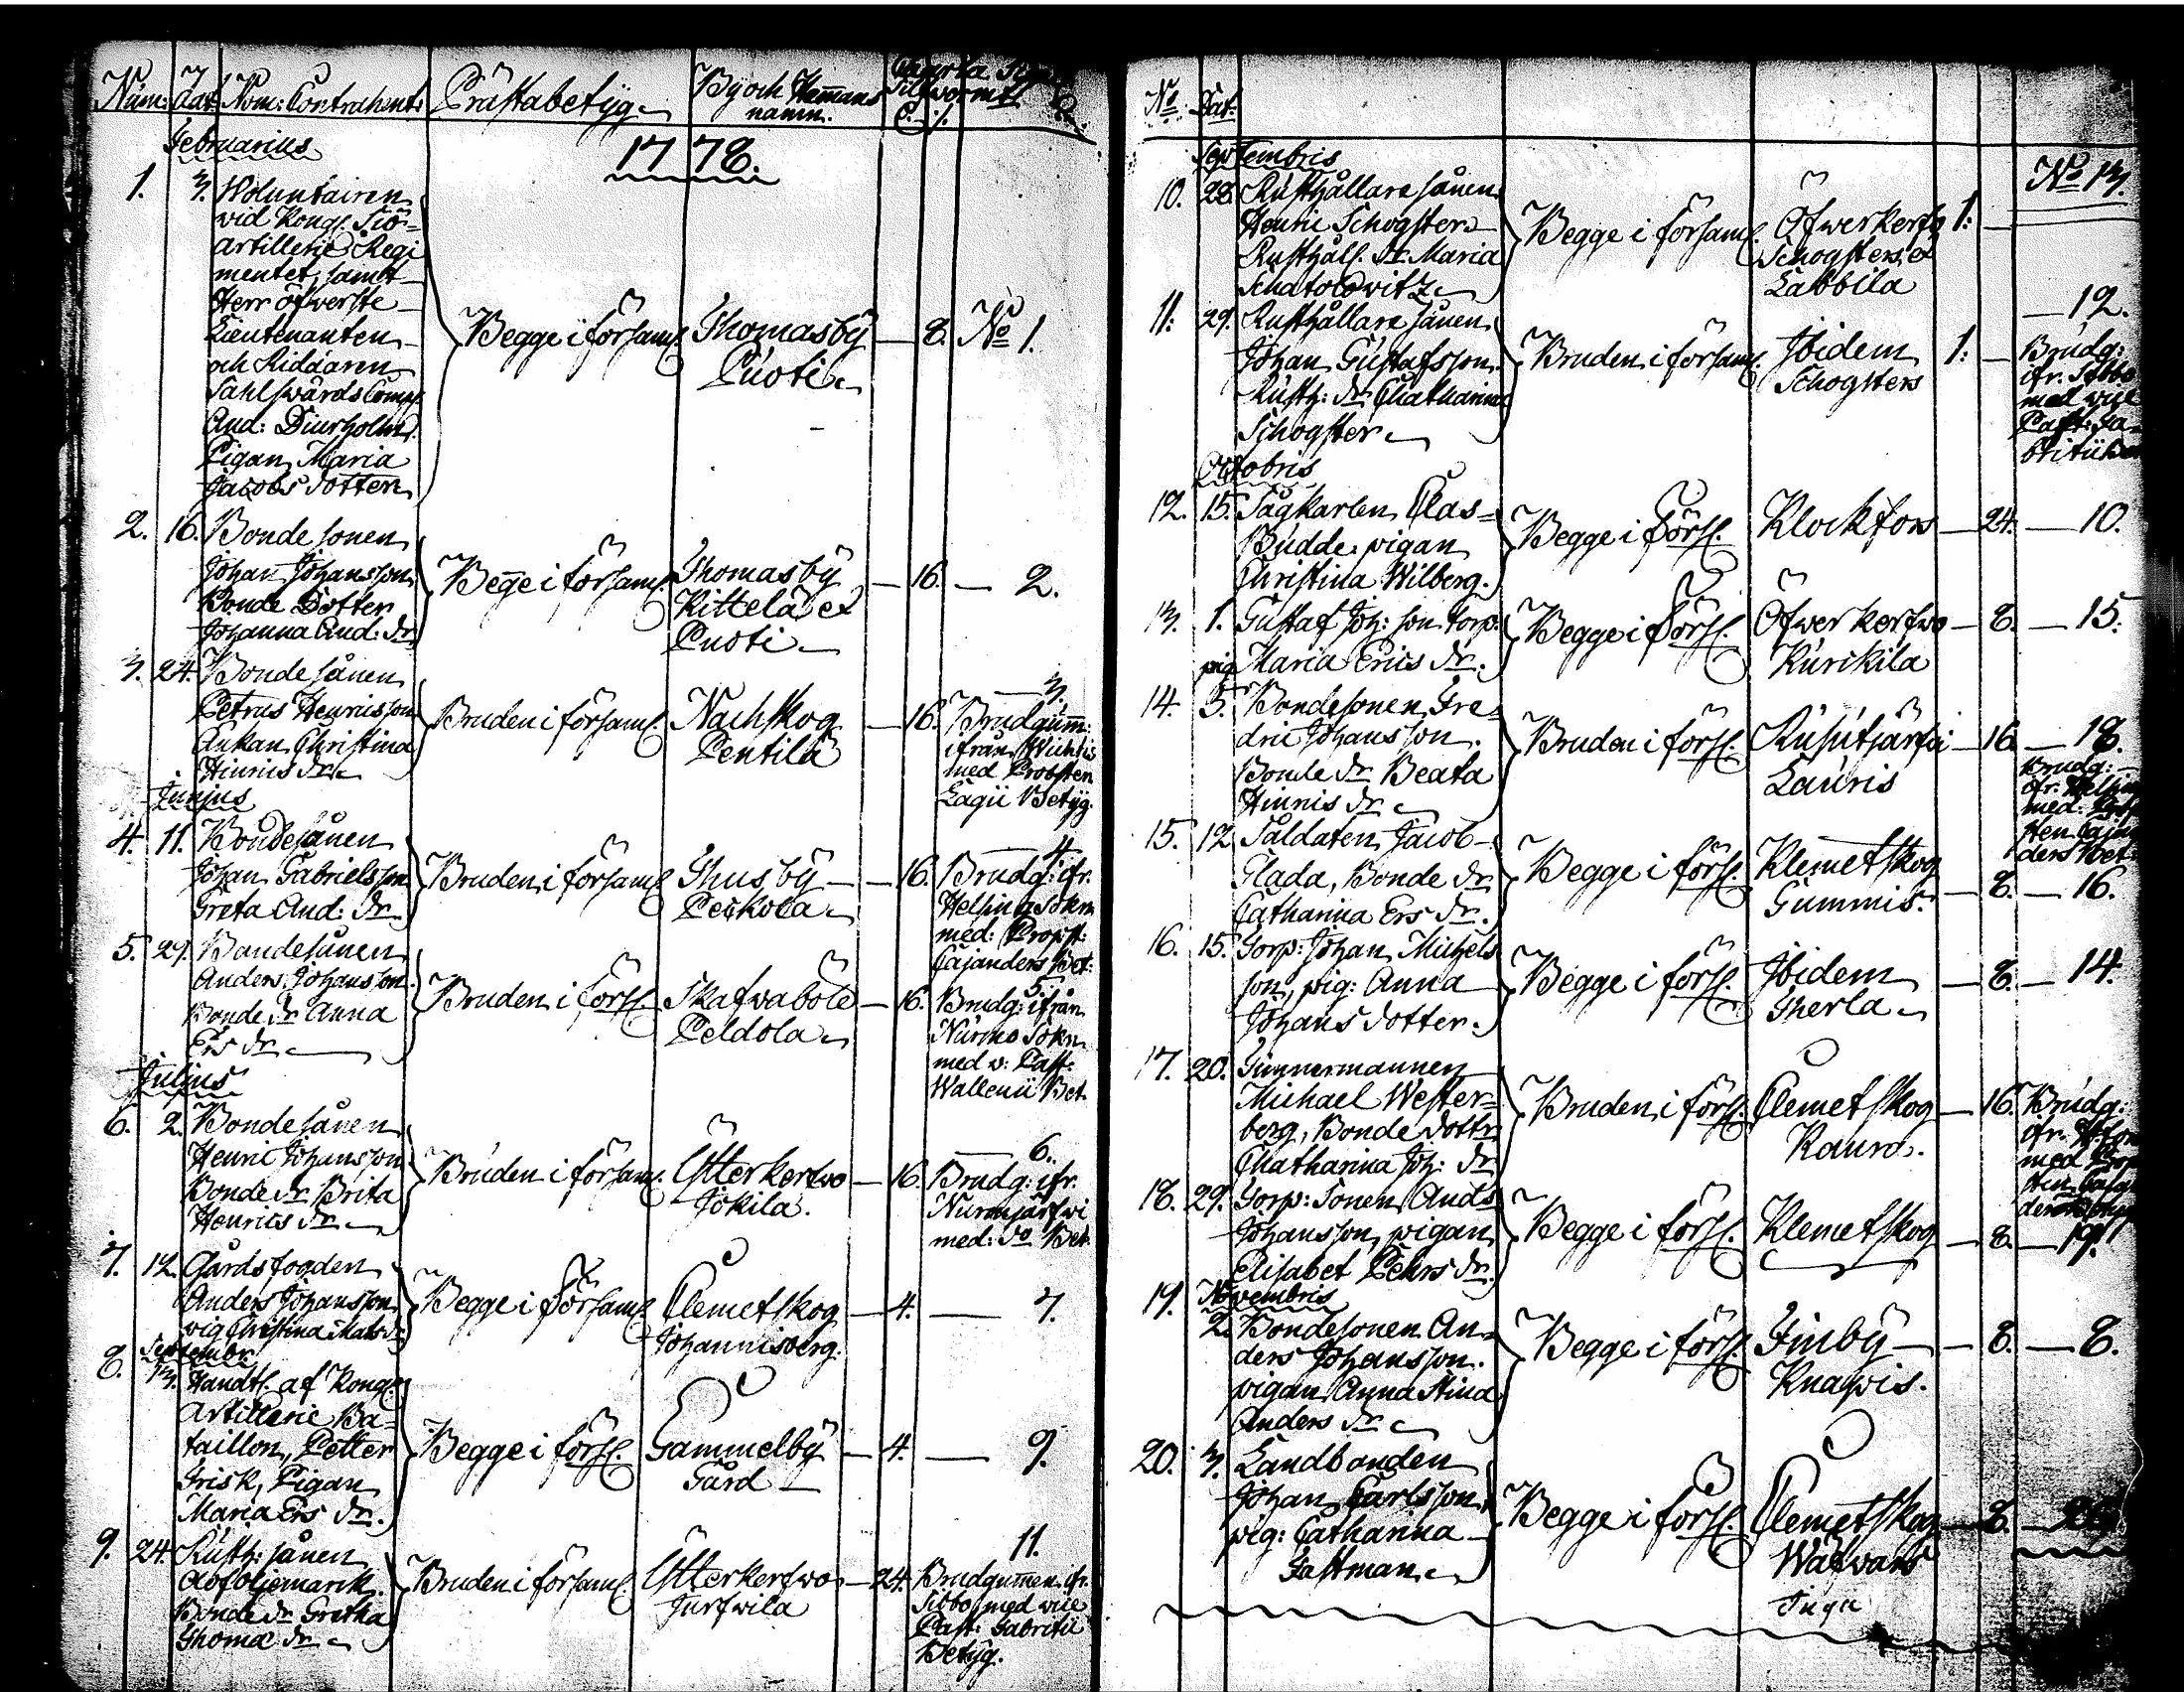 Num: Dat. Nom: Contrahent: Prästabetyg By och Hemans namn.
1778.
Februarius
1. 3. Woluntairen
vid Kongl. Siö-
artillerie Regi
mentet, samt
Herr öfwerste
Lieutenanten
och Riddaren
Sahlswärds Comp.
And: Diurholm
Pigan Maria
Jacobs dotter
Begge i församl. Thomasby
Puoti
8. No 1.
2. 16. Bonde sonen
Johan Johansson
Bonde Dotter
Johanna And: dr
Begge i församl. Thomasby
Kittelä et
Puoti
16. 2.
3. 24. Bonde sånen
Petrus Henricsson
Änkan Christina
Hinrics dr.
Bruden i församl. Nachskog
Pentilä
16. 3.
Brudgum:
ifrån Wichtis
med Probsten
Lagii Betyg.
Junius
4. 11. Bondesånen
Johan Gabrielsson
Greta And: dr
Bruden i församl. Thusby
Peckola
16. 4.
Brudg: ifr.
Helsing Sokn
med: Propst:
Cajanders Bet:
5. 29. Bondesånen
Anders Johansson
Bonde dr Anna
Ers dr
Bruden i förs. Skafwaböle
Peldola
16. 5.
Brudg: ifrån
Nurmo Sokn
med v: Past:
Wallenii Bet.
Julius
6. 2. Bondesånen
Henric Johansson
Bonde dr Brita
Henrics dr
Bruden i församl. Ytterkerfwo
Jokila.
16. 6.
Brudg: ifr.
Nurmijärfwi
med: do Bet.
7. 12. Gårdsfogden
Anders Johansson
pig Christina Mats dr
Begge i församl. Clemetskog
Johannisberg.
4. 7.
Septembr.
8. 13. Handtl. af Kongl.
Artillerie Ba-
taillon, Petter
Frisk, Pigan
Maria Ers dr.
Begge i förs. Gammelby
Gård
4. 9.
9. 24. Rusth: sånen
Bonde dr Gretha
Thomæ dr
Bruden i församl. Ytterkerfwo
Jurfwila
24. 11.
Brudgummen ifr.
Sibbo med vice
Past: Gabritii
Betyg.
No Dat:
Septembris
10. 28. Rusthållare sånen
Henric Schogster
Rusthåll. dr Maria
Schatolowitz
Begge i församl. Öfwerkerfwo
Schogsters et
Labbila
1: No 13.
11. 29. Rusthållare sånen
Johan Gustafsson
Rusth: dr Chatharina
Schogster
Bruden i församl. Ibidem
Schogsters
1: 12.
Brudg:
ifr. Sibbo
med vice
Past: Ga-
britii
Octobris
12. 15. Sågkarlen Clas
Budde pigan
Christina Wilberg.
Begge i förs. Klockfors
24. 10.
13. 1. Gustaf Joh: son torp:
pig Maria Erics dr.
Begge i förs. Öfwerkerfwo
Kurikila
8. 15.
14. 5. Bondesonen Fre-
dric Johansson.
Bonde dr Beata
Hinrics dr
Bruden i förs. Rusutjärfvi
Lauris
16. 18.
Brudg:
ifr. Helsing
med: Prop-
sten Cajan
ders Bet:
15. 12. Såldaten Jacob
Glada, Bonde dr
Catharina Ers dr.
Begge i förs. Klemetskog
Gummis.
8. 16.
16. 15. Torp: Johan Michels
son, pig: Anna
Johans dotter.
Begge i förs. Ibidem
Therla
8. 14.
17. 20. Timmermannen
Michael Wester-
berg, Bonde dottr
Chatharina Joh: dr
Bruden i förs. Clemetskog
Kauro.
16. Brudg:
ifr.
med Prop
sten Cajan
ders
18. 29. Torp: Sonen Anders
Johansson, pigan
Elisabet Pehrs dr.
Begge i förs. Klemetskog
8. 19.
Novembris
19. 2. Bondesonen An-
ders Johansson.
pigan Anna Stina
Anders dr
Begge i förs. Finby
Knapis.
8. 8.
20. 3. Landbonden
Johan Carlsson
pig: Catharina
Gastman
Begge i förs. Clemetskog
Wäfwars
Tuga
8.